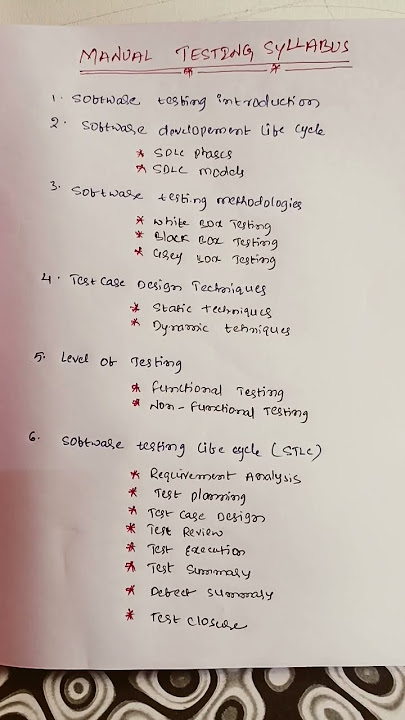 MANUAL TESTING SYLLABUS
1. Software testing introduction
2. Software developement Life cycle
* SDLC phases
* SDLC models
3. Software testing methodologies
* White Box Testing
* Black Box Testing
* Grey Box Testing
4. Test Case Design Techniques
* Static techniques
* Dynamic tehniques
5. Level of Testing
* Functional Testing
* Non-Functional Testing
6. Software testing life cycle (STLC)
* Requirement Analysis
* Test planning
* Test Case Design
* Test Review
* Test Execution
* Test Summary
* Defect summary
* Test closure